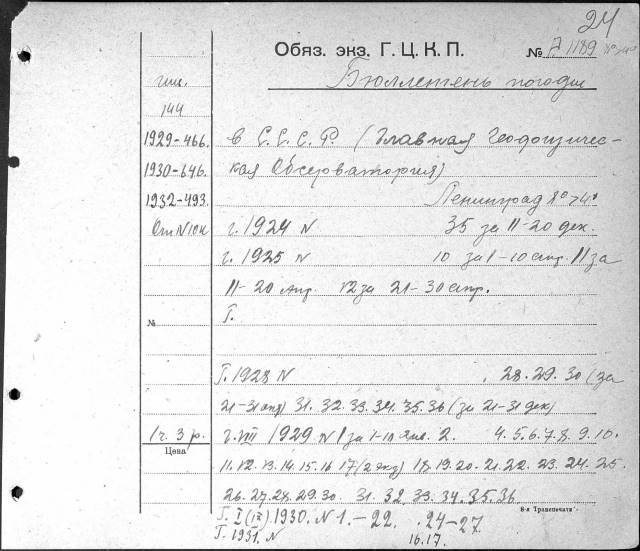 24
Обяз. экз. Г. Ц. К. П. № 71189
Бюллетень погоды
144
1929-466. в С.С.С.Р. (Главная Геофизичес-
1930-646. кая Обсерватория)
1932-493. Ленинград 8°>4°
г. 1924 N 35 за 11-20 дек.
г. 1925 N 10 за 1-10 апр. 11 за
11-20 апр. 12 за 21-30 апр.
№ Г.
Г. 1928 N . 28. 29. 30 (за
31. 32. 33. 34. 35. 36 (за 21-31 дек)
1 ч. 3 р. г. VIII 1929 N 1 за 1-10 янв. 2. 4. 5. 6. 7. 8. 9. 10.
Цена
11. 12. 13. 14. 15. 16 17 (2 экз) 18. 19. 20. 21. 22. 23. 24. 25.
26. 27. 28. 29. 30. 31. 32. 33. 34. 35. 36.
8-я Транспечати
Г. I (IX) 1930. N 1. -22. . 24-27.
Г. 1931. N 16. 17.